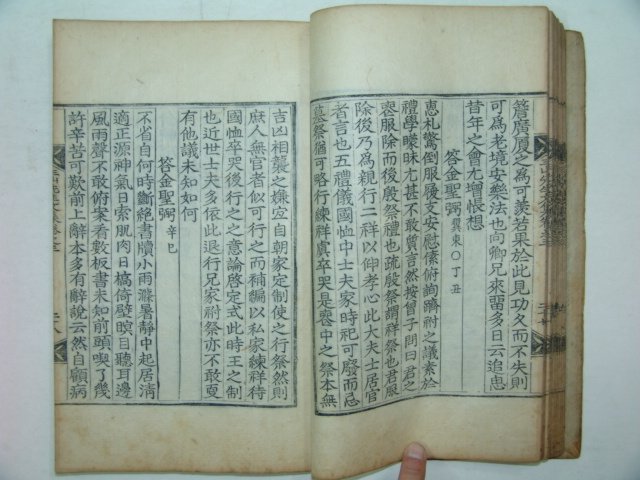 簷廣厦之爲可羨若果於此見功久而不失則
可爲老境安樂法也向卿兄來留多日云追思
昔年之會尤增悵想
答金聖弼冀東○丁丑
惠札驚倒服履支安慰傃俯詢躋祔之議素於
禮學曚昧尤甚不敢質言然按曾子問曰君之
喪服除而後殷祭禮也疏殷祭謂祥祭也君服
除後乃爲親行二祥以仰孝心此大夫士居官
者言也五禮儀國恤中士夫家時祀可廢而忌
墓祭猶可略行練祥虞卒哭是喪中之祭本無
吉凶相襲之嫌宜自朝家定制使之行祭然則
庶人無官者似可行之而補編以私家練祥待
國恤卒哭後行之之意論啓定式此時王之制
也近世士夫多依此退行兄家祔祭亦不敢更
有他議未知如何
答金聖弼辛巳
不省自何時斷絶書牘小雨滌暑靜中起居淸
適正源神氣日索肌肉日槁倚壁瞑目聽耳邊
風雨聲不敢俯案看數板書未知前頭喫了幾
許辛苦可歎前上辭本多有辭說云然自顧病